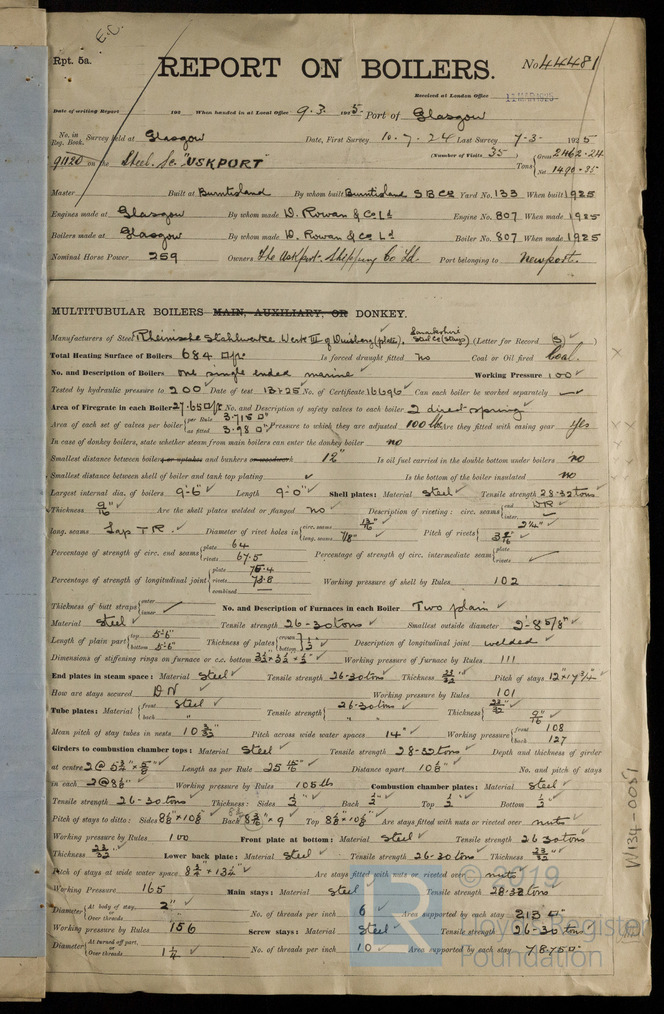 E.C.
Rpt. 5a.
REPORT ON BOILERS.
No 44481
Received at London Office 11 MAR 1925
Date of writing Report 192 When handed in at Local Office 9.3. 1925 Port of Glasgow
No. in Reg. Book. Survey held at Glasgow Date, First Survey 10.7.24 Last Survey 7-3- 1925
91120 on the Steel Sc "USKPORT" (Number of Visits 35) Tons { Gross 2462.24 Net 1490.35
Master Built at Burntisland By whom built Burntisland S B Co Yard No. 133 When built 1925
Engines made at Glasgow By whom made D. Rowan & Co Ld Engine No. 807 When made 1925
Boilers made at Glasgow By whom made D. Rowan & Co Ld Boiler No. 807 When made 1925
Nominal Horse Power 259 Owners The Uskport Shipping Co Ld. Port belonging to Newport.
MULTITUBULAR BOILERS MAIN, AUXILIARY, OR DONKEY.
Manufacturers of Steel Rheinische Stahlwerke Werk III of Duisburg (plates), Lanarkshire Steel Co (stays) (Letter for Record (S))
Total Heating Surface of Boilers 684 □ft Is forced draught fitted no Coal or Oil fired Coal.
No. and Description of Boilers one single ended marine Working Pressure 100
Tested by hydraulic pressure to 200 Date of test 13.1.25 No. of Certificate 16696 Can each boiler be worked separately —
Area of Firegrate in each Boiler 27.65 □ft No. and Description of safety valves to each boiler 2 direct spring
Area of each set of valves per boiler { per Rule 3.715 □" as fitted 3.98 □" Pressure to which they are adjusted 100 lb Are they fitted with easing gear yes
In case of donkey boilers, state whether steam from main boilers can enter the donkey boiler no
Smallest distance between boilers or uptakes and bunkers or woodwork 12" Is oil fuel carried in the double bottom under boilers no
Smallest distance between shell of boiler and tank top plating Is the bottom of the boiler insulated no
Largest internal dia. of boilers 9'-6" Length 9'-0" Shell plates: Material Steel Tensile strength 28-32 tons
Thickness 9/16" Are the shell plates welded or flanged no Description of riveting: circ. seams { end DR inter. —
long. seams Lap T R. Diameter of rivet holes in { circ. seams 13/16" long. seams 7/8" Pitch of rivets { 2¼"
Percentage of strength of circ. end seams { plate 64 rivets 67.5 Percentage of strength of circ. intermediate seam { plate rivets
Percentage of strength of longitudinal joint { plate 75.4 rivets 73.8 combined — Working pressure of shell by Rules 102
Thickness of butt straps { outer inner No. and Description of Furnaces in each Boiler Two plain
Material Steel Tensile strength 26-30 tons Smallest outside diameter 2'-8 5/8"
Length of plain part { top 5'-6" bottom 5'-6" Thickness of plates { crown bottom } ½" Description of longitudinal joint welded
Dimensions of stiffening rings on furnace or c.c. bottom 3½" x 3½" x ½" Working pressure of furnace by Rules 111
End plates in steam space: Material Steel Tensile strength 26-30 tons Thickness 23/32" Pitch of stays 12" x 17¾"
How are stays secured DN Working pressure by Rules 101
Tube plates: Material { front Steel back " Tensile strength { 26-30 tons " Thickness { 23/32" 9/16"
Mean pitch of stay tubes in nests 10 3/32" Pitch across wide water spaces 14" Working pressure { front 108 back 127
Girders to combustion chamber tops: Material Steel Tensile strength 28-32 tons Depth and thickness of girder
at centre 2 @ 5¾" x 5/8" Length as per Rule 25 15/16" Distance apart 10⅛" No. and pitch of stays
in each 2 @ 8⅛" Working pressure by Rules 105 lb Combustion chamber plates: Material Steel
Tensile strength 26-30 tons Thickness: Sides ½" Back ½" Top ½" Bottom ½"
Pitch of stays to ditto: Sides 8⅛" x 10⅛" Back x 9" Top 8⅛" x 10⅛" Are stays fitted with nuts or riveted over nuts
Working pressure by Rules 100 Front plate at bottom: Material Steel Tensile strength 26 30 tons
Thickness 23/32" Lower back plate: Material Steel Tensile strength 26-30 tons Thickness 23/32"
Pitch of stays at wide water space 8¾" x 13¼" Are stays fitted with nuts or riveted over nuts
Working Pressure 165 Main stays: Material Steel Tensile strength 28-32 tons
Diameter { At body of stay, or Over threads 2" No. of threads per inch 6 Area supported by each stay 213 □"
Working pressure by Rules 156 Screw stays: Material Steel Tensile strength 26-30 tons
Diameter { At turned off part, or Over threads 1¼" No. of threads per inch 10 Area supported by each stay 78.75 □"
W134-0051
© 2019
Lloyd's Register
Foundation